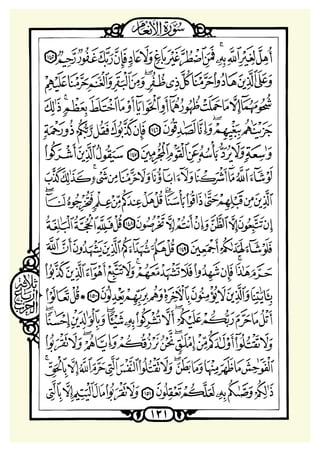 سُورَةُ الأَنْعَام
أُهِلَّ لِغَيْرِ ٱللَّهِ بِهِۦ فَمَنِ ٱضْطُرَّ غَيْرَ بَاغٍ وَلَا عَادٍ فَإِنَّ رَبَّكَ غَفُورٌ رَّحِيمٌ ١٤٥
وَعَلَى ٱلَّذِينَ هَادُوا۟ حَرَّمْنَا كُلَّ ذِى ظُفُرٍ وَمِنَ ٱلْبَقَرِ وَٱلْغَنَمِ حَرَّمْنَا عَلَيْهِمْ
شُحُومَهُمَآ إِلَّا مَا حَمَلَتْ ظُهُورُهُمَآ أَوِ ٱلْحَوَايَآ أَوْ مَا ٱخْتَلَطَ بِعَظْمٍ ذَٰلِكَ
جَزَيْنَٰهُم بِبَغْيِهِمْ وَإِنَّا لَصَٰدِقُونَ ١٤٦ فَإِن كَذَّبُوكَ فَقُل رَّبُّكُمْ ذُو رَحْمَةٍ
وَٰسِعَةٍ وَلَا يُرَدُّ بَأْسُهُۥ عَنِ ٱلْقَوْمِ ٱلْمُجْرِمِينَ ١٤٧ سَيَقُولُ ٱلَّذِينَ أَشْرَكُوا۟
لَوْ شَآءَ ٱللَّهُ مَآ أَشْرَكْنَا وَلَآ ءَابَآؤُنَا وَلَا حَرَّمْنَا مِن شَىْءٍ كَذَٰلِكَ كَذَّبَ
ٱلَّذِينَ مِن قَبْلِهِمْ حَتَّىٰ ذَاقُوا۟ بَأْسَنَا قُلْ هَلْ عِندَكُم مِّنْ عِلْمٍ فَتُخْرِجُوهُ لَنَآ
إِن تَتَّبِعُونَ إِلَّا ٱلظَّنَّ وَإِنْ أَنتُمْ إِلَّا تَخْرُصُونَ ١٤٨ قُلْ فَلِلَّهِ ٱلْحُجَّةُ ٱلْبَٰلِغَةُ
فَلَوْ شَآءَ لَهَدَىٰكُمْ أَجْمَعِينَ ١٤٩ قُلْ هَلُمَّ شُهَدَآءَكُمُ ٱلَّذِينَ يَشْهَدُونَ أَنَّ ٱللَّهَ
حَرَّمَ هَٰذَا فَإِن شَهِدُوا۟ فَلَا تَشْهَدْ مَعَهُمْ وَلَا تَتَّبِعْ أَهْوَآءَ ٱلَّذِينَ كَذَّبُوا۟
بِـَٔايَٰتِنَا وَٱلَّذِينَ لَا يُؤْمِنُونَ بِٱلْـَٔاخِرَةِ وَهُم بِرَبِّهِمْ يَعْدِلُونَ ١٥٠ قُلْ تَعَالَوْا۟
أَتْلُ مَا حَرَّمَ رَبُّكُمْ عَلَيْكُمْ أَلَّا تُشْرِكُوا۟ بِهِۦ شَيْـًٔا وَبِٱلْوَٰلِدَيْنِ إِحْسَٰنًا
وَلَا تَقْتُلُوٓا۟ أَوْلَٰدَكُم مِّنْ إِمْلَٰقٍ نَّحْنُ نَرْزُقُكُمْ وَإِيَّاهُمْ وَلَا تَقْرَبُوا۟
ٱلْفَوَٰحِشَ مَا ظَهَرَ مِنْهَا وَمَا بَطَنَ وَلَا تَقْتُلُوا۟ ٱلنَّفْسَ ٱلَّتِى حَرَّمَ ٱللَّهُ إِلَّا بِٱلْحَقِّ
ذَٰلِكُمْ وَصَّىٰكُم بِهِۦ لَعَلَّكُمْ تَعْقِلُونَ ١٥١ وَلَا تَقْرَبُوا۟ مَالَ ٱلْيَتِيمِ إِلَّا بِٱلَّتِى
١٣١